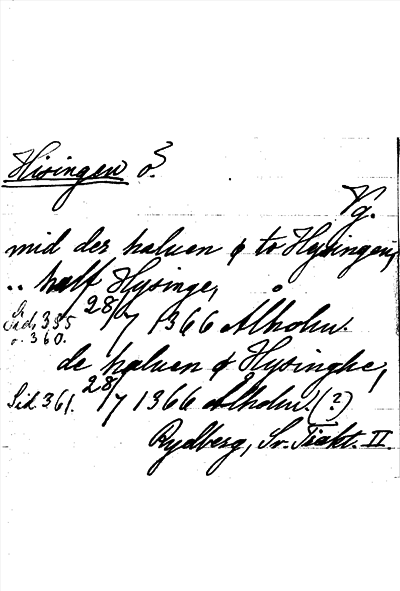 Hisingen ö.
Vg.
mid der haluen ø to Hysingen,
.. half Hysinge,
Sid. 355 28/7 1366 Ålholm.
o. 360.
de haluen ø Hysinghe,
Sid. 361. 28/7 1366 Ålholm. (?)
Rydberg, Sv. Trakt. II.